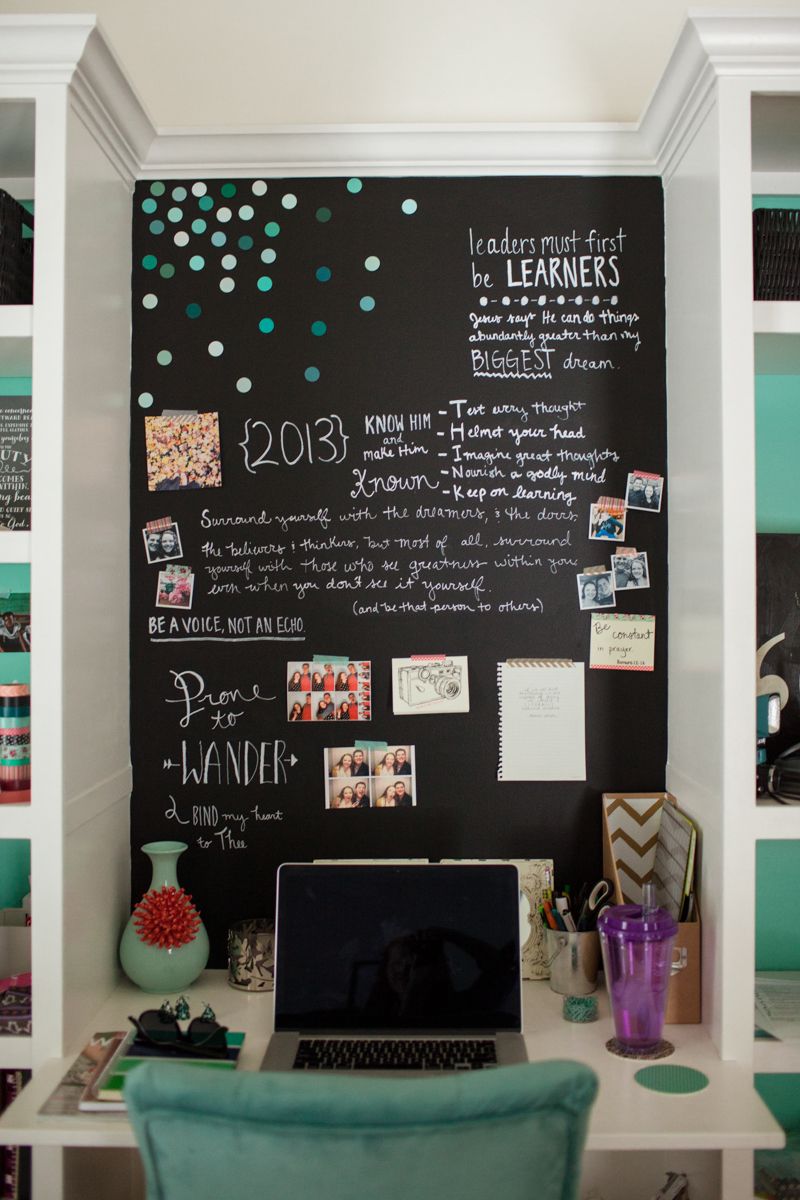 leaders must first
be LEARNERS
Jesus says He can do things
abundantly greater than my
BIGGEST dream.
{2013}
KNOW HIM
and
make Him
Known
- Test every thought
- Helmet your head
- Imagine great thoughts
- Nourish a godly mind
- Keep on learning
Surround yourself with the dreamers, & the doers
the believers & thinkers, but most of all, surround
yourself with those who see greatness within you
even when you don't see it yourself.
(and be that person to others)
BE A VOICE, NOT AN ECHO.
Be
constant
in prayer.
Romans 12:12
Prone
to
WANDER
BIND my heart
to Thee
COMES
WITHIN,
God